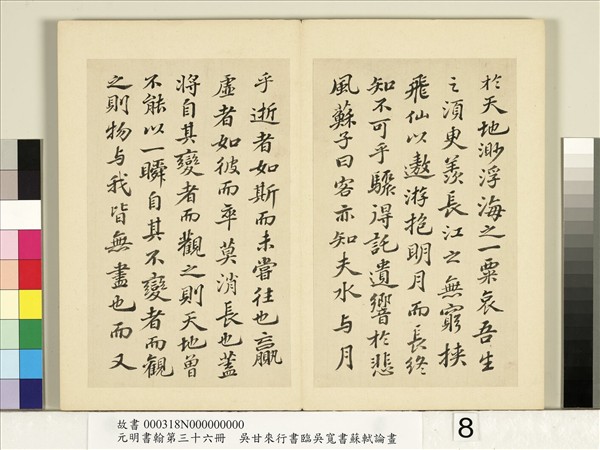 於天地渺浮海之一粟哀吾生
之須臾羨長江之無窮挾
飛仙以遨游抱明月而長終
知不可乎驟得託遺響於悲
風蘇子曰客亦知夫水与月
乎逝者如斯而未嘗往也贏
虛者如彼而卒莫消長也蓋
將自其變者而觀之則天地曾
不能以一瞬自其不變者而觀
之則物与我皆無盡也而又
故書 000318N000000000
元明書翰第三十六冊 吳甘來行書臨吳寬書蘇軾論畫
8